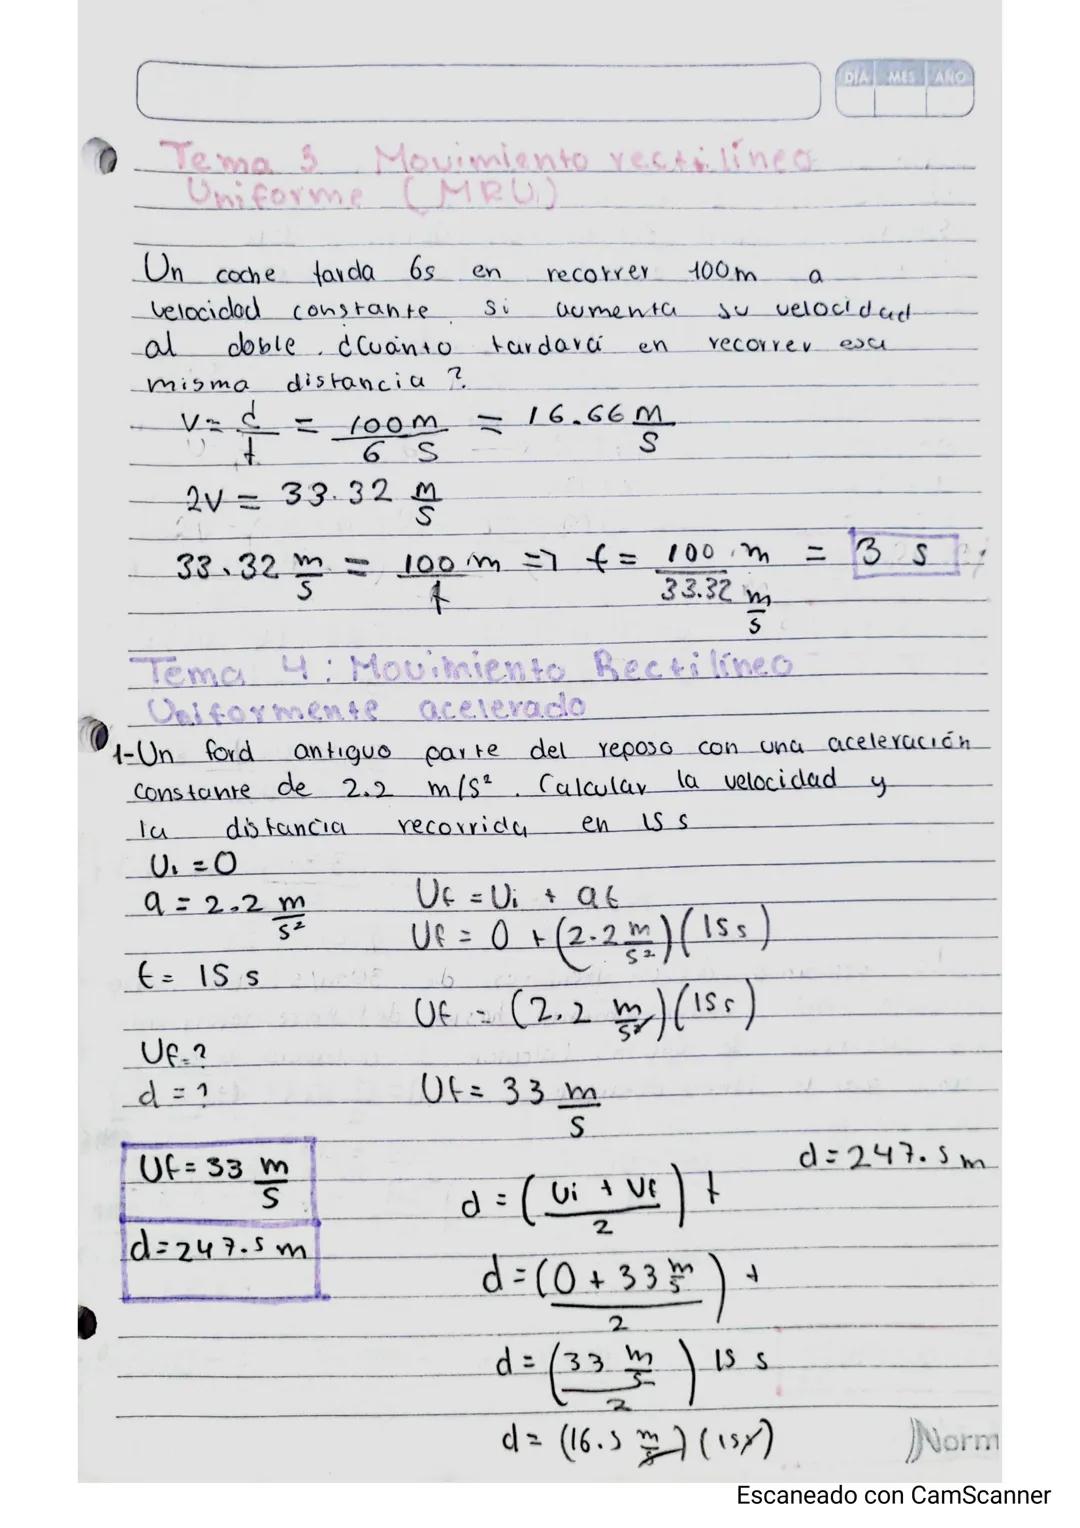 DÍA MES AÑO
Tema 3 Movimiento rectilíneo
Uniforme (MRU)
Un coche tarda 6s en recorrer 100m a
velocidad constante. Si aumenta su velocidad
al doble. ¿Cuánto tardará en recorrer esa
misma distancia?
V = d/t = 100m/6 s = 16.66 m/s
2V = 33.32 m/s
33.32 m/s = 100 m/t => t = 100 m/33.32 m/s = 3 s
Tema 4: Movimiento Rectilíneo
Uniformente acelerado
1-Un ford antiguo parte del reposo con una aceleración
constante de 2.2 m/s². Calcular la velocidad y
la distancia recorrida en 15 s
Ui = 0
a = 2.2 m/s²
t = 15 s
Uf = ?
d = ?
Uf = 33 m/s
d = 247.5 m
Uf = Ui + at
Uf = 0 + (2.2 m/s²)(15s)
Uf = (2.2 m/s²)(15s)
Uf = 33 m/s
d = (Ui + Vf/2) t
d = (0 + 33 m/s/2) t
d = (33 m/s/2) 15 s
d = (16.5 m/s)(15s)
d = 247.5 m
Norm
Escaneado con CamScanner